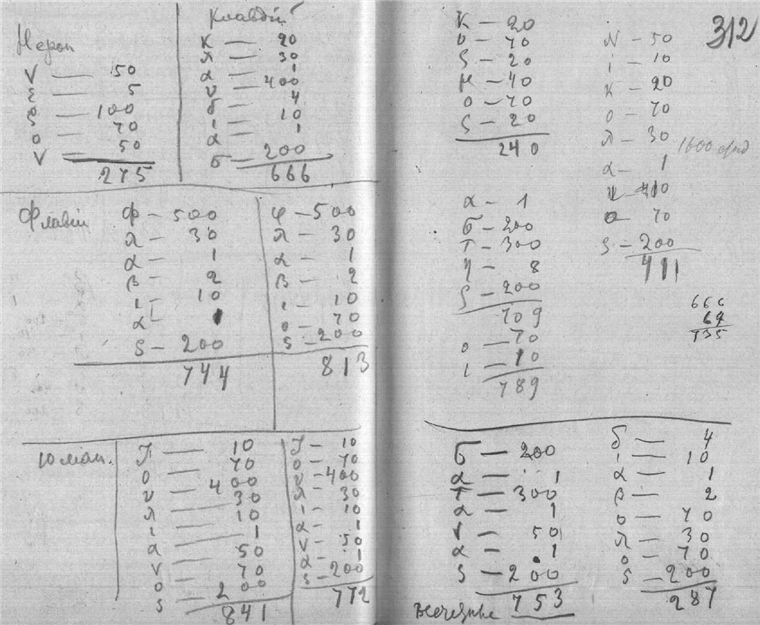 Нерон
ν — 50
ε — 5
ρ — 100
ο — 70
ν — 50
275
Клавдій
κ — 20
λ — 30
α — 1
υ — 400
δ — 4
ι — 10
α — 1
ς — 200
666
Флавій
φ — 500
λ — 30
α — 1
β — 2
ι — 10
α — 1
ς — 200
744
φ — 500
λ — 30
α — 1
β — 2
ι — 10
ο — 70
ς — 200
813
Юліан.
Ι — 10
ο — 70
υ — 400
λ — 30
ι — 10
α — 1
ν — 50
ο — 70
ς — 200
841
Ι — 10
ο — 70
υ — 400
λ — 30
ι — 10
α — 1
ν — 50
α — 1
ς — 200
772
312
κ — 20
ο — 70
ς — 20
μ — 40
ο — 70
ς — 20
240
α — 1
ς — 200
τ — 300
η — 8
ς — 200
709
ο — 70
ι — 10
789
Ν — 50
ι — 10
κ — 20
ο — 70
λ — 30
α — 1
ο — 70
ς — 200
411
666
69
735
ς — 200
α — 1
τ — 300
α — 1
ν — 50
α — 1
ς — 200
753
δ — 4
ι — 10
α — 1
β — 2
ο — 70
λ — 30
ο — 70
ς — 200
287